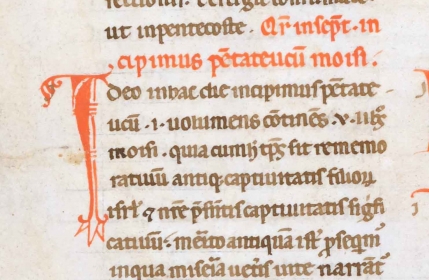 ut in pentecoste. Qr̄ in sept̄. in
cipimus pētateucū moisi.
Ideo in hac die incipimus pētate-
ucū .i. volumens cōtinēs .v. lib̄
moisi. quia cum h̄ tp̄s fit rememo
ratiuū antiq̄ captiuitatis filioꝝ
isrł ⁊ nr̄e p̄ntis captiuitatis sigfi
catiuū. merito antiquā istā p̄sequim̄
in qua miseria ueteris uite narrāt̄